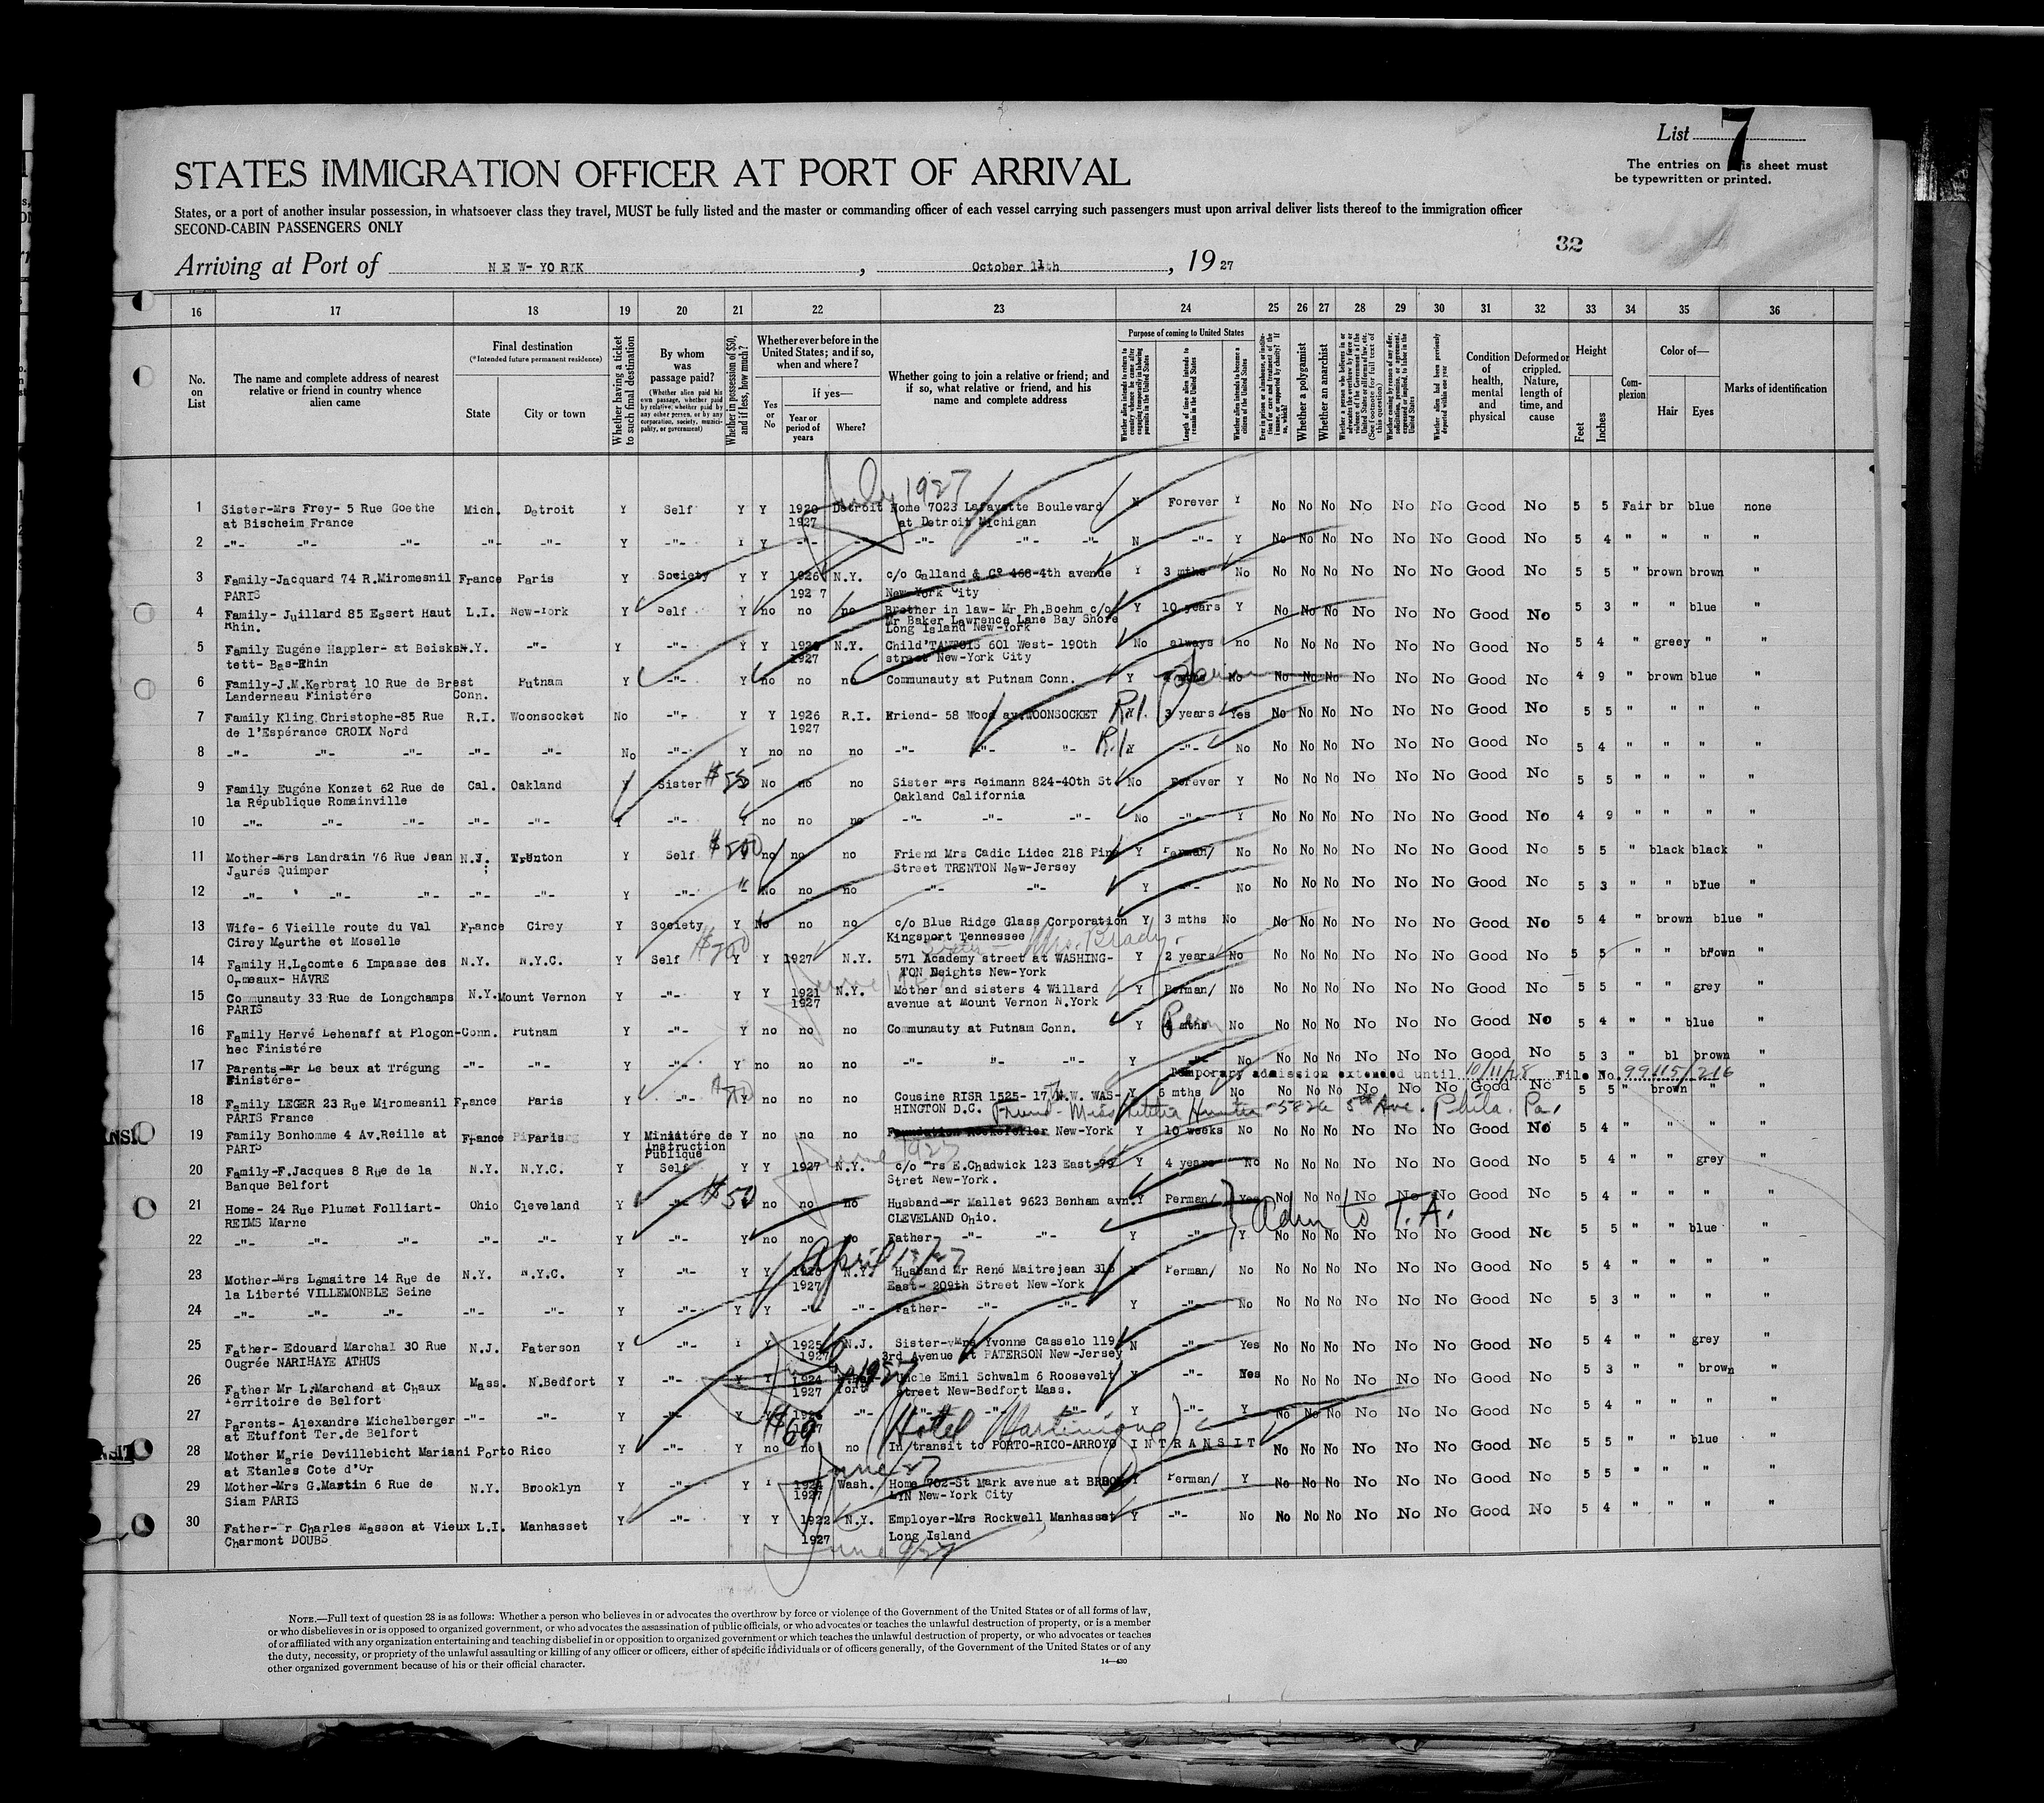 List 7
The entries on this sheet must
be typewritten or printed.
STATES IMMIGRATION OFFICER AT PORT OF ARRIVAL
States, or a port of another insular possession, in whatsoever class they travel, MUST be fully listed and the master or commanding officer of each vessel carrying such passengers must upon arrival deliver lists thereof to the immigration officer
SECOND-CABIN PASSENGERS ONLY
32
Arriving at Port of NEW-YORK, October 11th, 1927
16 17 18 19 20 21 22 23 24 25 26 27 28 29 30 31 32 33 34 35 36
No. on List
The name and complete address of nearest relative or friend in country whence alien came
Final destination (*Intended future permanent residence)
State City or town
Whether having a ticket to such final destination
By whom was passage paid?
(Whether alien paid his own passage, whether paid by relative, whether paid by any other person, or by any corporation, society, municipality, or government)
Whether in possession of $50, and if less, how much?
Whether ever before in the United States; and if so, when and where?
Yes or No
If yes—
Year or period of years Where?
Whether going to join a relative or friend; and if so, what relative or friend, and his name and complete address
Purpose of coming to United States
Length of time alien intends to remain in the United States
Whether alien intends to become a citizen of the United States
Whether a polygamist
Whether an anarchist
Whether alien had been previously deported within one year
Condition of health, mental and physical
Deformed or crippled. Nature, length of time, and cause
Height
Feet Inches
Complexion
Color of—
Hair Eyes
Marks of identification
July 1927
1 Sister-Mrs Frey- 5 Rue Goethe Mich. Detroit Y Self Y Y 1920 Detroit Home 7023 Lafayette Boulevard N Forever Y No No No No No No Good No 5 5 Fair br blue none
at Bischeim France 1927 at Detroit Michigan
2 -"- -"- -"- -"- -"- Y -"- Y Y -"- -"- -"- -"- -"- N -"- Y No No No No No No Good No 5 4 " " " "
3 Family-Jacquard 74 R.Miromesnil France Paris Y Society Y Y 1926 N.Y. c/o Galland & Co 468-4th avenue Y 3 mths No No No No No No No Good No 5 5 " brown brown "
PARIS 1927 New-York City
4 Family- Juillard 85 Essert Haut L.I. New-York Y Self Y no no no Brother in law- Mr Ph.Boehm c/o Y 10 years Y No No No No No No Good No 5 3 " " blue "
Rhin. Mr Baker Lawrence Lane Bay Shore
Long Island New-York
5 Family Eugéne Happler- at Beisks N.Y. -"- Y -"- Y Y N.Y. Child 601 West- 190th No always no No No No No No No Good No 5 4 " greey " "
tett- Bas-Rhin 1927 street New-York City
6 Family-J.M.Kerbrat 10 Rue de Brest Conn. Putnam Y -"- Y no no no Communauty at Putnam Conn. Y mths No No No No No No No Good No 4 9 " brown blue "
Landerneau Finistére
7 Family Kling Christophe-85 Rue R.I. Woonsocket No -"- Y Y 1926 R.I. Friend- 58 Wood av.WOONSOCKET R.I. 3 years Yes No No No No No No Good No 5 5 " " " "
de l'Espérance CROIX Nord 1927
8 -"- -"- -"- -"- -"- No -"- Y no no no -"- -"- "- R.I. -"- No No No No No No No Good No 5 4 " " " "
9 Family Eugéne Konzet 62 Rue de Cal. Oakland Y Sister $55 No no no Sister mrs Reimann 824-40th St No Forever Y No No No No No No Good No 5 5 " " " "
la République Romainville Oakland California
10 -"- -"- -"- -"- -"- Y -"- Y no no no -"- -"- -"- No -"- Y No No No No No No Good No 4 9 " " " "
11 Mother-mrs Landrain 76 Rue Jean N.J. Trenton Y Self $500 Y no no no Friend Mrs Cadic Lidec 218 Pine Y Perman/ No No No No No No No Good No 5 5 " black black "
Jaurés Quimper Street TRENTON New-Jersey
12 -"- -"- -"- -"- -"- Y -"- " no no no -"- -"- Y -"- No No No No No No No Good No 5 3 " " blue "
13 Wife- 6 Vieille route du Val France Cirey Y Society Y No no no c/o Blue Ridge Glass Corporation Y 3 mths No No No No No No No Good No 5 4 " brown blue "
Cirey Meurthe et Moselle Kingsport Tennessee
Mrs. Brady
14 Family H.Lecomte 6 Impasse des N.Y. N.Y.C. Y Self $200 Y Y 1927 N.Y. 571 Academy street at WASHING- Y 2 years No No No No No No No Good No 5 5 " " brown
Ormeaux- HAVRE TON Heights New-York
15 Communauty 33 Rue de Longchamps N.Y. Mount Vernon Y -"- Y Y 1921 N.Y. Mother and sisters 4 Willard Y Perman/ No No No No No No No Good No 5 5 " " grey "
PARIS 1927 avenue at Mount Vernon N.York
16 Family Hervé Lehenaff at Plogon- Conn. Putnam Y -"- Y no no no Communauty at Putnam Conn. Y mths Perm No No No No No No No Good No 5 4 " " blue "
hec Finistére
17 Parents-mr Le beux at Trégung -"- -"- Y -"- Y no no no -"- "- -"- Y -"- No No No No No No No Good No 5 3 " bl brown "
Finistére-
Temporary admission extended until 10/11/28 File No. 99115/216
18 Family LEGER 23 Rue Miromesnil France Paris Y -"- Y no no no Cousine RISR 1525- 17th N.W. WAS- Y 6 mths No No No No No No No Good No 5 5 " brown " "
PARIS France HINGTON D.C. Friend- Miss Letitia Hunter-5826 5th Ave. Phila. Pa.
19 Family Bonhomme 4 Av.Reille at France Paris Y Ministére de Y no no no Foundation Rockefeller New-York Y 10 weeks No No No No No No No Good No 5 4 " " " "
PARIS Instruction Publique
20 Family-F.Jacques 8 Rue de la N.Y. N.Y.C. Y Self Y Y 1927 N.Y. c/o mrs E.Chadwick 123 East-79 Y 4 years No No No No No No No Good No 5 4 " " grey "
Banque Belfort Stret New-York.
21 Home- 24 Rue Plumet Folliart- Ohio Cleveland Y -"- $50 no no no Husband-mr Mallet 9623 Benham avn. Y Perman/ Yes No No No No No No Good No 5 4 " " " "
REIMS Marne CLEVELAND Ohio.
Adm to T.A.
22 -"- -"- -"- -"- -"- Y -"- Y no no no Father- -"- -"- Y -"- Y No No No No No No Good No 5 5 " " blue "
April 1927
23 Mother-mrs Lemaitre 14 Rue de N.Y. N.Y.C. Y -"- Y Y N.Y. Husband Mr René Maitrejean 316 Perman/ No No No No No No No Good No 5 4 " " " "
la Liberté VILLEMONBLE Seine 1927 East- 209th Street New-York
24 -"- -"- -"- -"- -"- Y -"- Y Y -"- -"- Father- -"- -"- Y -"- No No No No No No No Good No 5 3 " " " "
25 Father- Edouard Marchal 30 Rue N.J. Paterson Y -"- Y Y 1925 N.J. Sister-Mrs Yvonne Casselo 119 N -"- Yes No No No No No No Good No 5 4 " " grey "
Ougrée NARIHAYE ATHUS 1927 3rd Avenue at PATERSON New-Jersey
26 Father Mr L.Marchand at Chaux Mass. N.Bedfort Y -"- Y Y 1924 Uncle Emil Schwalm 6 Roosevelt Y -"- Yes No No No No No No Good No 5 3 " " brown "
Territoire de Belfort 1927 Street New-Bedfort Mass.
27 Parents- Alexandre Michelberger -"- -"- Y -"- Y -"- -"- -"- -"- Y -"- Y No No No No No No Good No 5 4 " " " "
at Etuffont Ter.de Belfort $60 (Hotel Martinique)
28 Mother Marie Devillebicht Mariani Porto Rico Y -"- Y no no no In transit to PORTO-RICO-ARROYO IN TRANSIT No No No No No No Good No 5 5 " " blue "
at Etanles Cote d'Or
June 27
29 Mother-Mrs G.Mastin 6 Rue de N.Y. Brooklyn Y -"- Y Y 1924 Wash. Home 702-St Mark avenue at BROOK Y Perman/ Y No No No No No No Good No 5 5 " " " "
Siam PARIS 1927 LYN New-York City
30 Father-mr Charles Masson at Vieux L.I. Manhasset Y -"- Y Y 1922 N.Y. Employer-Mrs Rockwell Manhasset Y -"- No No No No No No No Good No 5 4 " " " "
Charmont DOUBS 1927 Long Island
June 9/27
NOTE.—Full text of question 28 is as follows: Whether a person who believes in or advocates the overthrow by force or violence of the Government of the United States or of all forms of law,
or who disbelieves in or is opposed to organized government, or who advocates the assassination of public officials, or who advocates or teaches the unlawful destruction of property, or is a member
of or affiliated with any organization entertaining and teaching disbelief in or opposition to organized government or which teaches the unlawful destruction of property, or who advocates or teaches
the duty, necessity, or propriety of the unlawful assaulting or killing of any officer or officers, either of specific individuals or of officers generally, of the Government of the United States or of any
other organized government because of his or their official character.
14—430